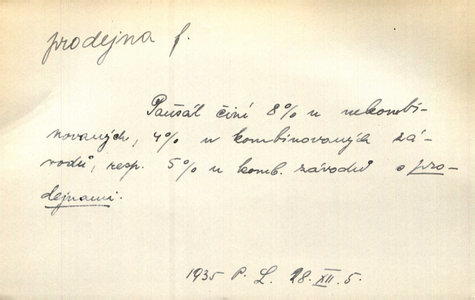 prodejna f.
Paušál činí 8% u nekombi-
novaných, 4% u kombinovaných zá-
vodů, resp. 5% u komb. závodů s pro-
dejnami.
1935 P. L. 28. XII. 5.